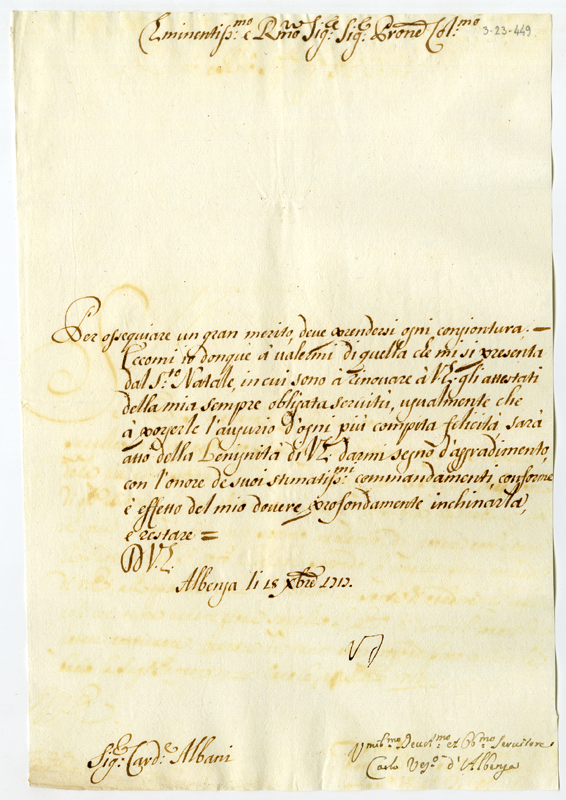 Eminentiss.mo e Rmo Sig.re Sig.re Prone Col.mo
3-23-449
Per osseguiare un gran merito, deve prendersi ogni conjontura. =
Eccomi donque à valermi di quella che mi si presenta
dal S.to Natale, in cui sono à rinovare à V.E. gli attestati
della mia sempre obligata servitù, ugualmente che
à porgerle l'augurio d'ogni più compita felicità sarà
atto della Benignità di V.E. darmi segno d'aggradimento,
con l'onore de suoi stimatiss.mi commandamenti, conforme
è effetto del mio dovere profondamente inchinarla,
e restare =
D V.E.
Albenga li 18 Xbre 1717.
Sig.re Card.le Albani
Umil.mo Devot.mo et Obb.mo Servitore
Carlo Vesc.o d'Albenga